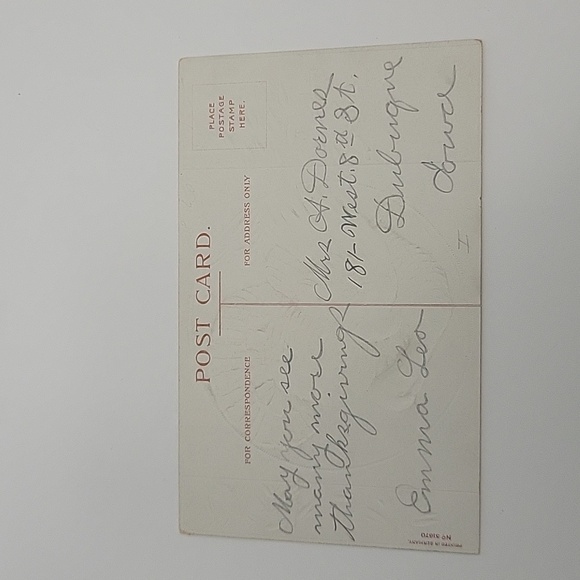 POST CARD.
PLACE
POSTAGE
STAMP
HERE.
FOR CORRESPONDENCE
FOR ADDRESS ONLY
May you see
many more
thanksgivings
Emma Leo
Mrs A. Doernes
181- West. 8th St.
Dubuque
Iowa
I
PRINTED IN GERMANY.